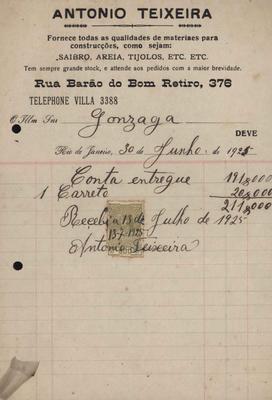 ANTONIO TEIXEIRA
Fornece todas as qualidades de materiaes para
construcções, como sejam:
SAIBRO, AREIA, TIJOLOS, ETC. ETC.
Tem sempre grande stock, e attende aos pedidos com a maior brevidade.
Rua Barão do Bom Retiro, 376
TELEPHONE VILLA 3388
O Illm Snr Gonzaga
DEVE
Rio de Janeiro, 30 de Junho de 1925
Conta entregue 191,000
1 Carreto 20,000
211,000
Recebi a 13 de Julho de 1925
13-7-1925
Antonio Teixeira